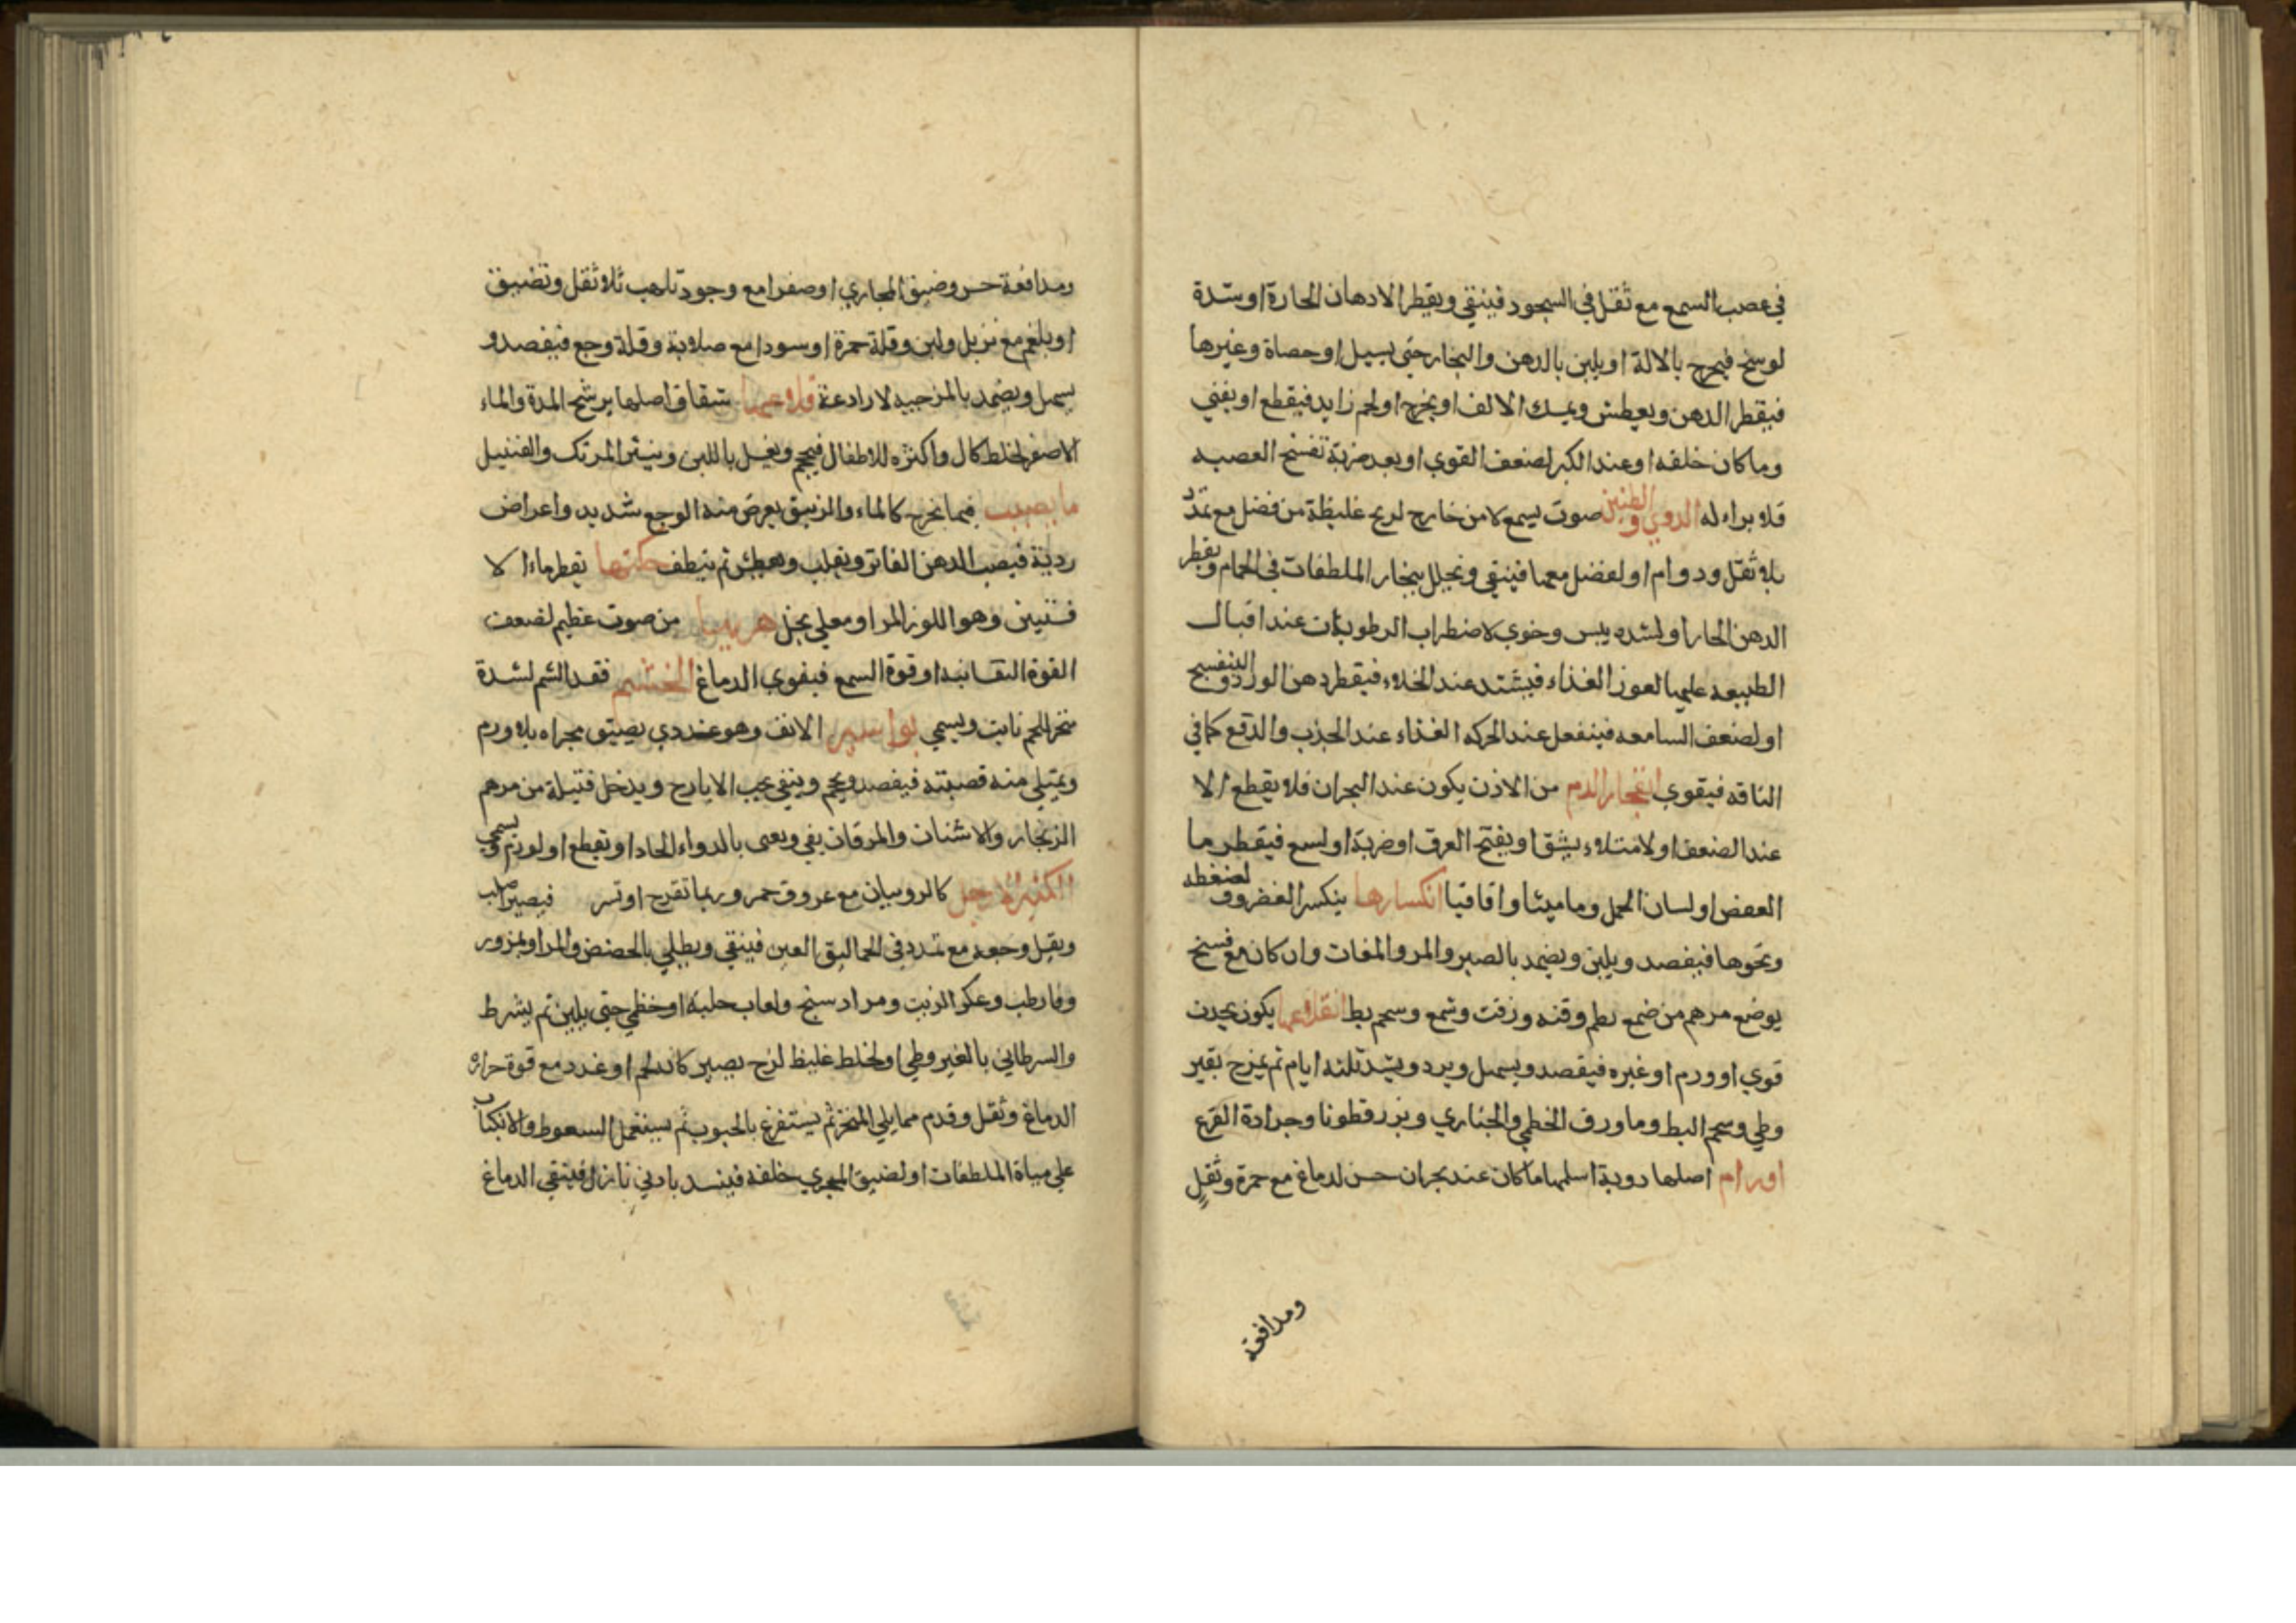 في عصب السمع مع ثقل في السجود فينقي ويقطر الادهان الحارة او سدة
لوسخ فيخرج بالالة او يلين بالدهن والبخار حتى يسيل او حصاة وغيرها
فيقطر الدهن ويعطس ويمسك الانف او يخرج او لحم زايد فيقطع او يفني
وما كان خلقه او عند الكبر لضعف القوي او بعد ضربة تفسخ العصبه
فلا براء له الدوي والطنين صوت يسمع لا من خارج لريح غليظة من فضل مع تمدد
بلا ثقل ودوام او لفضل معها فينقي ويحلل ببخار الملطفات في الحمام ويقطر
الدهن الحار او لشده يبس وخوي لاضطراب الرطوبات عند اقبال
الطبيعه عليها لعوز الغذاء فيشتد عند الخلاء فيقطر دهن الورد والبنفسج
او لضعف السامعه فينفعل عند الحركه الغذاء عند الجذب والدفع كما في
الناقه فيقوي انفجار الدم من الاذن يكون عند البحران فلا يقطع الا
عند الضعف او لامتلاء يشق او يفتح العرق او ضربة او لسع فيقطر ما
العفص او لسان الحمل وماميثا واقاقيا انكسارها ينكسر الغضروف لضغطه
ونحوها فيفصد ويلين ويضمد بالصبر والمر والمغات وان كان مع فسخ
يوضع مرهم من ضمع بطم وقنه وزفت وشمع وشحم بط انقلاعها يكون بجذب
قوي او ورم او غيره فيفصد ويسهل ويرد ويشد ثلثه ايام ثم يمزج بقير
وطي وشحم البط وما ورق الخطمي والخباري وبزر قطونا وجرادة القرع
اورام اصلها روية اسلمها ما كان عند بحران حسن لدماغ مع حمرة وثقل
ومدافعة
ومدافعة حس وضيق المجاري او صفرا مع وجود تلهب بلا ثقل وتضييق
او بلغم مع تربل ولين وقلة حمرة او سودا مع صلابة وقلة وجع فيفصد و
يسهل ويضمد بالمرخيه لا رادعة قلاعها شقاق اصلها يرشح المدة والماء
الاصفر لخلط كال واكثره للاطفال فيحجم ويغسل باللبن وينثر المرتك والقنبيل
ما يصيب فيها يخرج كالماء والزيبق يعرض منه الوجع شديد واعراض
ردية فيصب الدهن الفاتر ويقلب ويعطس ثم ينطف حكتها يقطر ماء الا
فسنتين وهو اللوز المر او مغلي بخل هربها من صوت عظيم لضعف
القوة النفسانيه او قوة السمع فيقوي الدماغ الخشم فقد الشم لشدة
منخر لحم نابت ويسمي بواسير الانف وهو غددي يضيق مجراه بلا ورم
ويمتلي منه قصبته فيفصد ويحجم وينقي بحب الايارج ويدخل فتيلة من مرهم
الزنجار والاشنان والمرقان يفي ويعى بالدواء الحاد او يقطع او لورم ويسمى
الكثير الارجل كالروبيان مع عروق حمر وربما تقرح او تسر فيصير صلب
ويقل وجعه مع تمدد في الحماليق العين فينقي ويطلي بالحضض والمر او بمزور
وفا رطب وعكر الزيت ومرادسنج ولعاب حلبه او خطمي حتى يلين ثم يشرط
والسرطاني بالقيروطي او لخلط غليظ لزج يصير كانه لحم او غدد مع قوة حرارة
الدماغ وثقل وقدم مما يلي المنخر ثم يستفرغ بالحبوب ثم يستعمل السعوط والانكباب
علي مياة الملطفات او لضيق المجري خلقه فينسد بادني نازل فينقي الدماغ